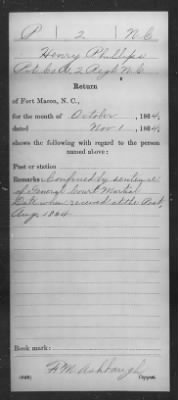 P | 2 | N C
Henry Phillips
Pvt. Co. A. 2 Regt N. C.
Return
of Fort Macon, N. C.,
for the month of October, 1864,
dated Nov 1, 1864,
shows the following with regard to the person
named above:
Post or station
Remarks: Confined by sentence
of General Court Martial
Date when received at the Post,
Aug. 1864
Book mark:
F M Ashbaugh
Copyist.